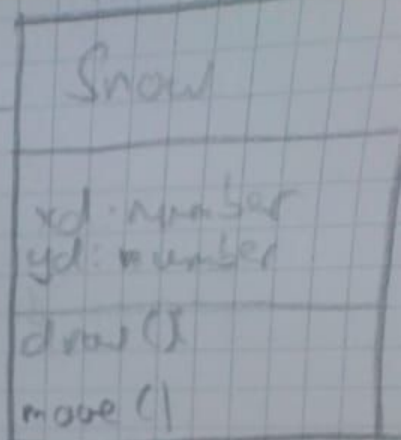 Snow
xd: number
yd: number
draw()
move()